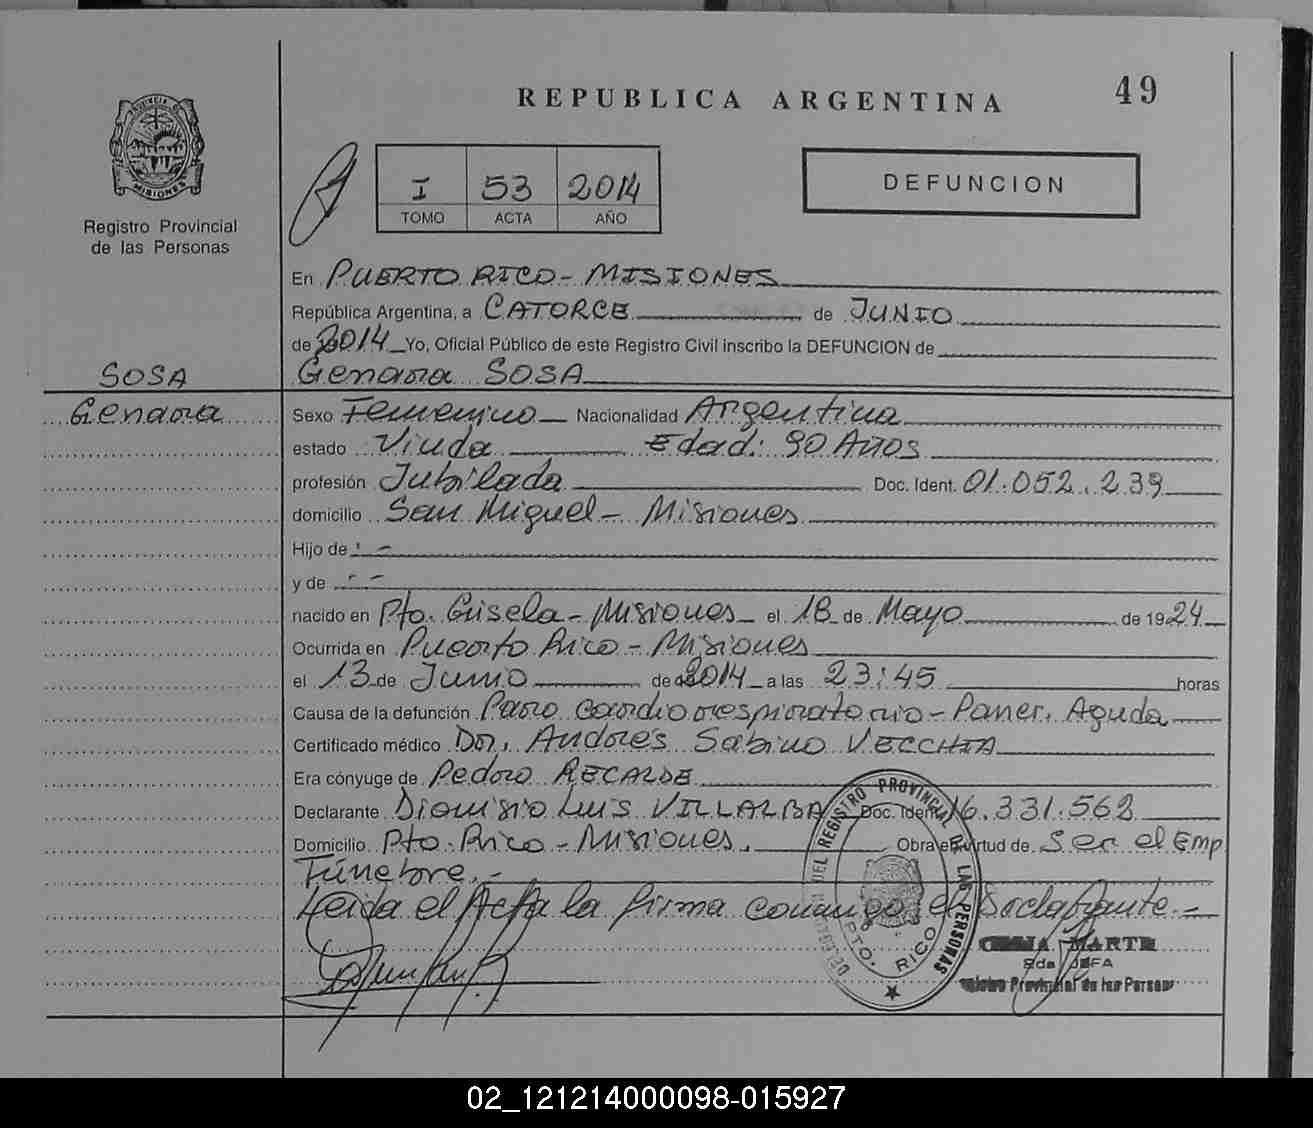 REPUBLICA ARGENTINA
49
PROVINCIA DE MISIONES
Registro Provincial
de las Personas
I 53 2014
TOMO ACTA AÑO
DEFUNCION
En PUERTO RICO - MISIONES
República Argentina, a CATORCE de JUNIO
de 2014 Yo, Oficial Público de este Registro Civil inscribo la DEFUNCION de
SOSA
Genara SOSA
Genara
Sexo Femenino Nacionalidad Argentina
estado Viuda Edad: 90 Años
profesión Jubilada Doc. Ident. 01.052.239
domicilio San Miguel - Misiones
Hijo de - -
y de - -
nacido en Pto. Gisela - Misiones el 18 de Mayo de 1924
Ocurrida en Puerto Rico - Misiones
el 13 de Junio de 2014 a las 23:45 horas
Causa de la defunción Paro cardiorespiratorio - Pancr. Aguda
Certificado médico Dr. Andrés Sabino VECCHIA
Era cónyuge de Pedro RECALDE
Declarante Dionisio Luis VILLALBA Doc. Ident. 16.331.562
Domicilio Pto. Rico - Misiones. Obra en virtud de Ser el Emp
Fúnebre.-
Leida el Acta la firma conmigo el Declarante.-
DEL REGISTRO PROVINCIAL DE LAS PERSONAS
PTO. RICO
MARTE
JEFA
Provincial de las Person
02_121214000098-015927